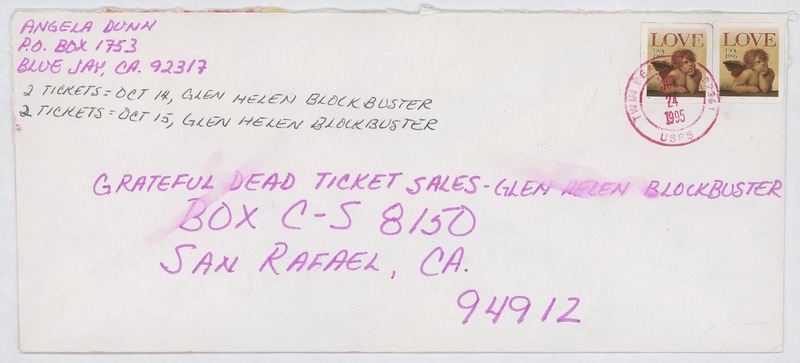 ANGELA DUNN
P.O. BOX 1753
BLUE JAY, CA. 92317
2 TICKETS = OCT 14, GLEN HELEN BLOCKBUSTER
2 TICKETS = OCT 15, GLEN HELEN BLOCKBUSTER
LOVE
USA
1995
LOVE
USA
1995
24
1995
USPS
GRATEFUL DEAD TICKET SALES - GLEN HELEN BLOCKBUSTER
BOX C-S 8150
SAN RAFAEL, CA.
94912